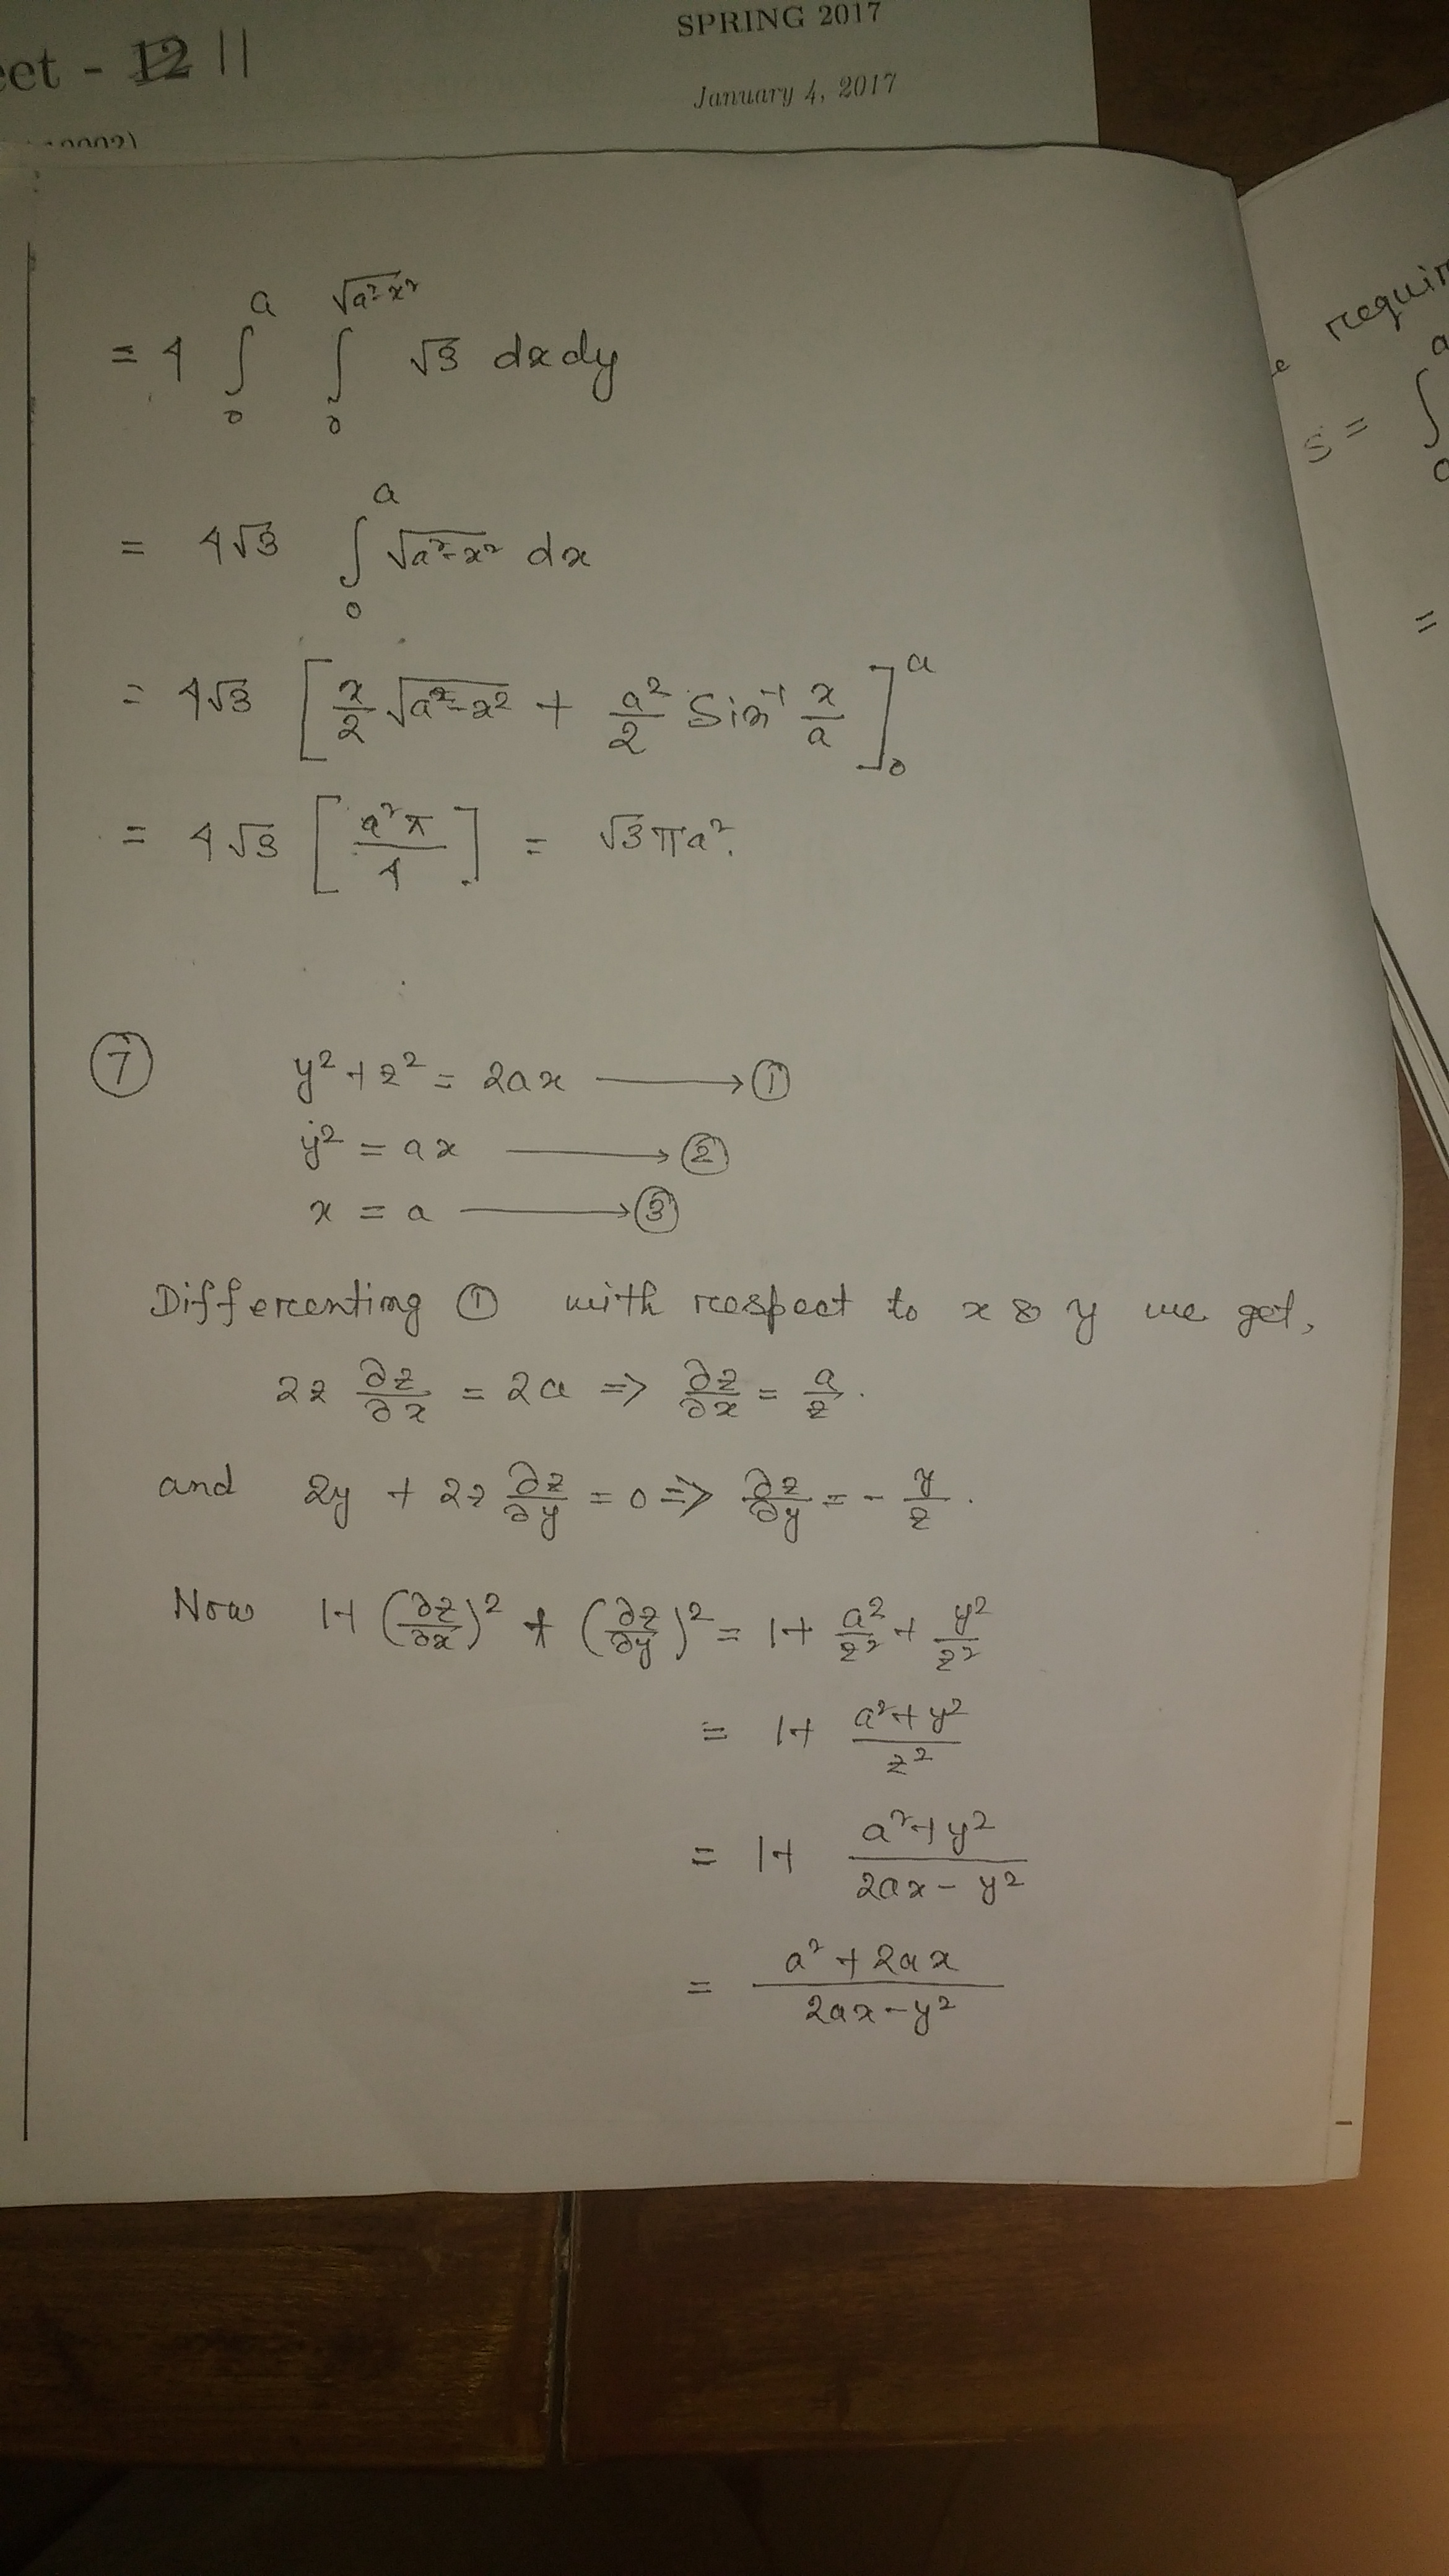 SPRING 2017
eet - 12 11
January 4, 2017
= 4 ∫₀^a ∫₀^√(a²-x²) √3 dxdy
= 4√3 ∫₀^a √(a²-x²) dx
= 4√3 [x/2 √(a²-x²) + a²/2 Sin⁻¹ x/a]₀^a
= 4√3 [a²π/4] = √3πa².
⑦ y²+z² = 2ax ⟶ ①
y² = ax ⟶ ②
x = a ⟶ ③
Differenting ① with respect to x & y we get,
2z ∂z/∂x = 2a ⇒ ∂z/∂x = a/z.
and 2y + 2z ∂z/∂y = 0 ⇒ ∂z/∂y = - y/z.
Now 1+ (∂z/∂x)² + (∂z/∂y)² = 1+ a²/z² + y²/z²
= 1+ (a²+y²)/z²
= 1+ (a²+y²)/(2ax-y²)
= (a²+2ax)/(2ax-y²)
requir
S = ∫₀^a
=